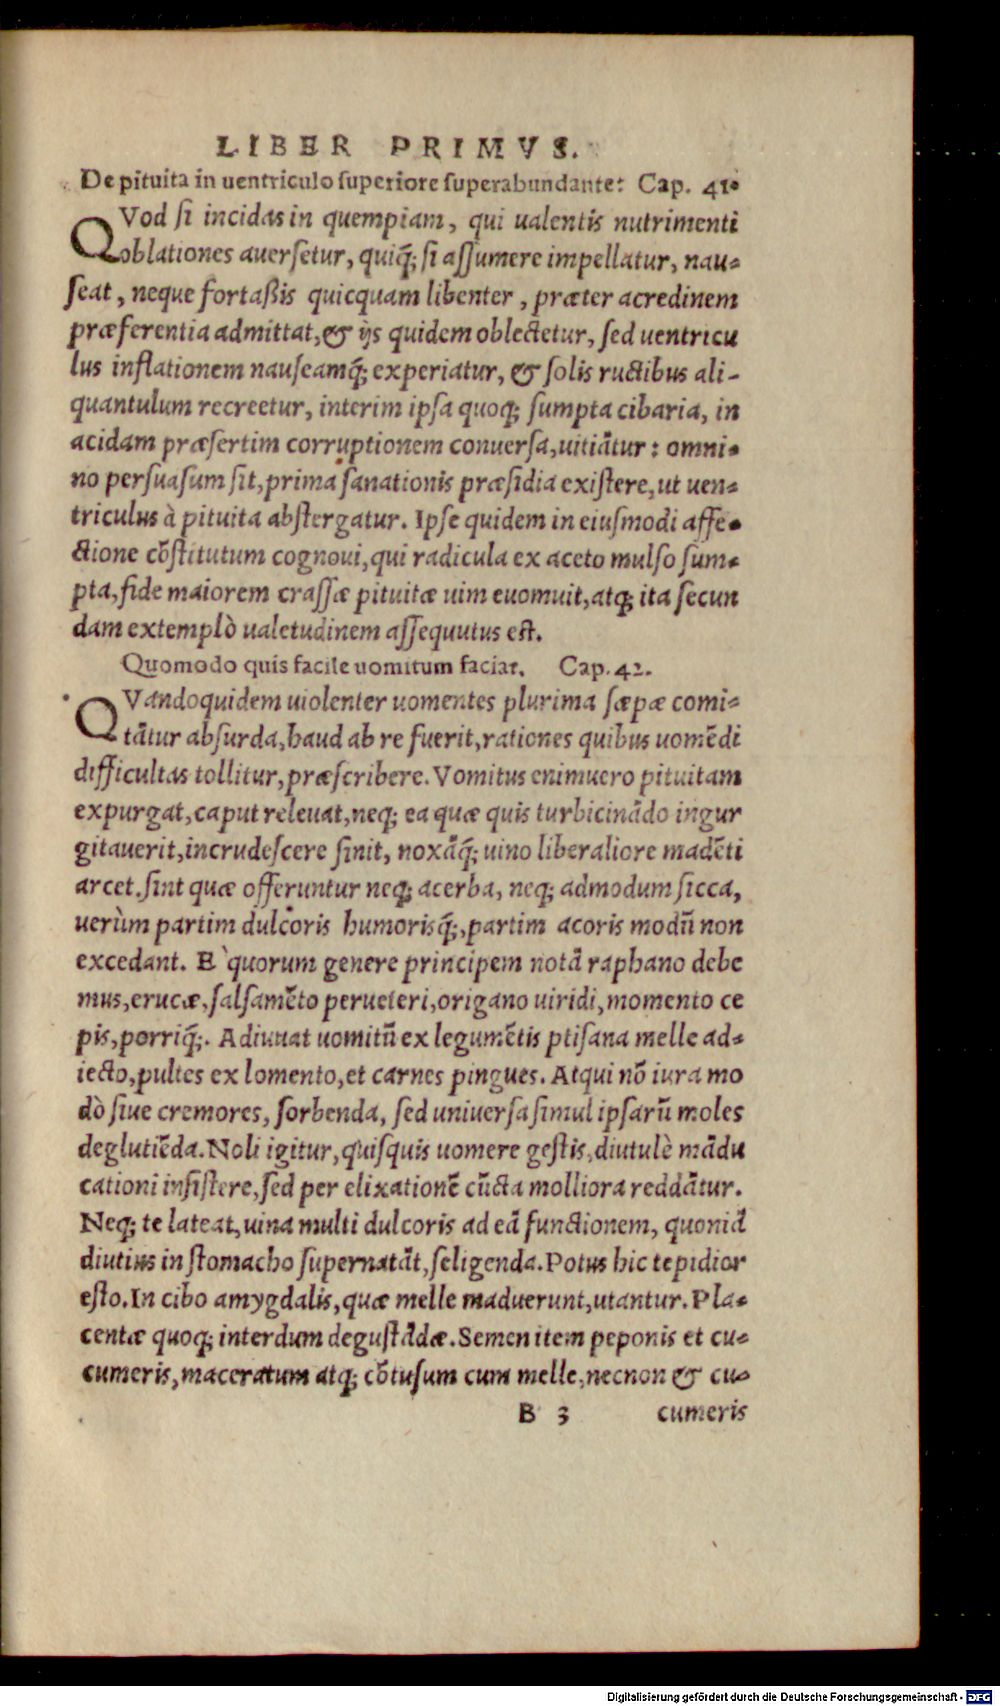 LIBER PRIMVS.
De pituita in uentriculo superiore superabundante: Cap. 41.
QVod si incidas in quempiam, qui ualentis nutrimenti
oblationes auersetur, quiq́; si assumere impellatur, nau-
seat, neque fortaßis quicquam libenter, præter acredinem
præferentia admittat, & ijs quidem oblectetur, sed uentricu
lus inflationem nauseamq́; experiatur, & solis ructibus ali-
quantulum recreetur, interim ipsa quoq; sumpta cibaria, in
acidam præsertim corruptionem conuersa, uitiãtur: omni-
no persuasum sit, prima sanationis præsidia existere, ut uen-
triculus à pituita abstergatur. Ipse quidem in eiusmodi affe-
ctione cõstitutum cognoui, qui radicula ex aceto mulso sum-
pta, fide maiorem crassæ pituitæ uim euomuit, atq; ita secun
dam extemplò ualetudinem assequutus est.
Quomodo quis facile uomitum faciat. Cap. 42.
QVandoquidem uiolenter uomentes plurima sæpæ comi-
tãtur absurda, haud ab re fuerit, rationes quibus uomẽdi
difficultas tollitur, præscribere. Vomitus enimuero pituitam
expurgat, caput releuat, neq; ea quæ quis turbicinãdo ingur
gitauerit, incrudescere sinit, noxãq́; uino liberaliore madẽti
arcet. sint quæ offeruntur neq; acerba, neq; admodum sicca,
uerùm partim dulcoris humorisq́;, partim acoris modũ non
excedant. E` quorum genere principem notã raphano debe
mus, erucæ, salsamẽto perueteri, origano uiridi, momento ce
pis, porriq́;. Adiuuat uomitũ ex legumẽtis ptisana melle ad-
iecto, pultes ex lomento, et carnes pingues. Atqui nõ iura mo
dò siue cremores, sorbenda, sed uniuersa simul ipsarũ moles
deglutiẽda. Noli igitur, quisquis uomere gestis, diutulè mãdu
cationi insistere, sed per elixationẽ cũcta molliora reddãtur.
Neq; te lateat, uina multi dulcoris ad eã functionem, quoniã
diutius in stomacho supernatãt, seligenda. Potus hic tepidior
esto. In cibo amygdalis, quæ melle maduerunt, utantur. Pla-
centæ quoq; interdum degustãdæ. Semen item peponis et cu-
cumeris, maceratum atq; cõtusum cum melle, necnon & cu-
B 3 cumeris
Digitalisierung gefördert durch die Deutsche Forschungsgemeinschaft - DFG